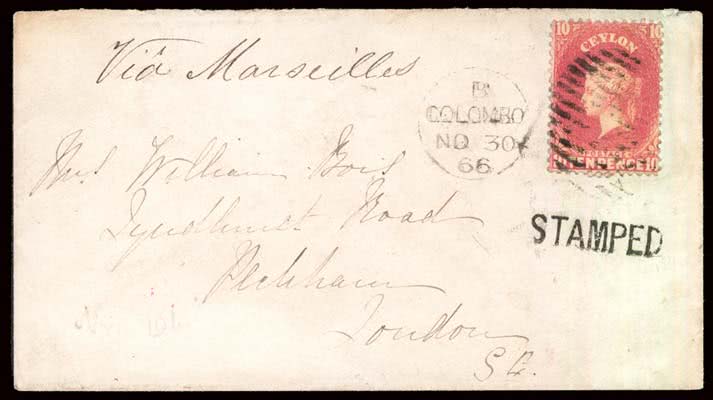 10 CEYLON 10
POSTAGE
TEN PENCE 10
Viâ Marseilles
B
COLOMBO
NO 30
66
STAMPED
Mrs William Bois
Lyndhurst Road
Peckham
London
S E.